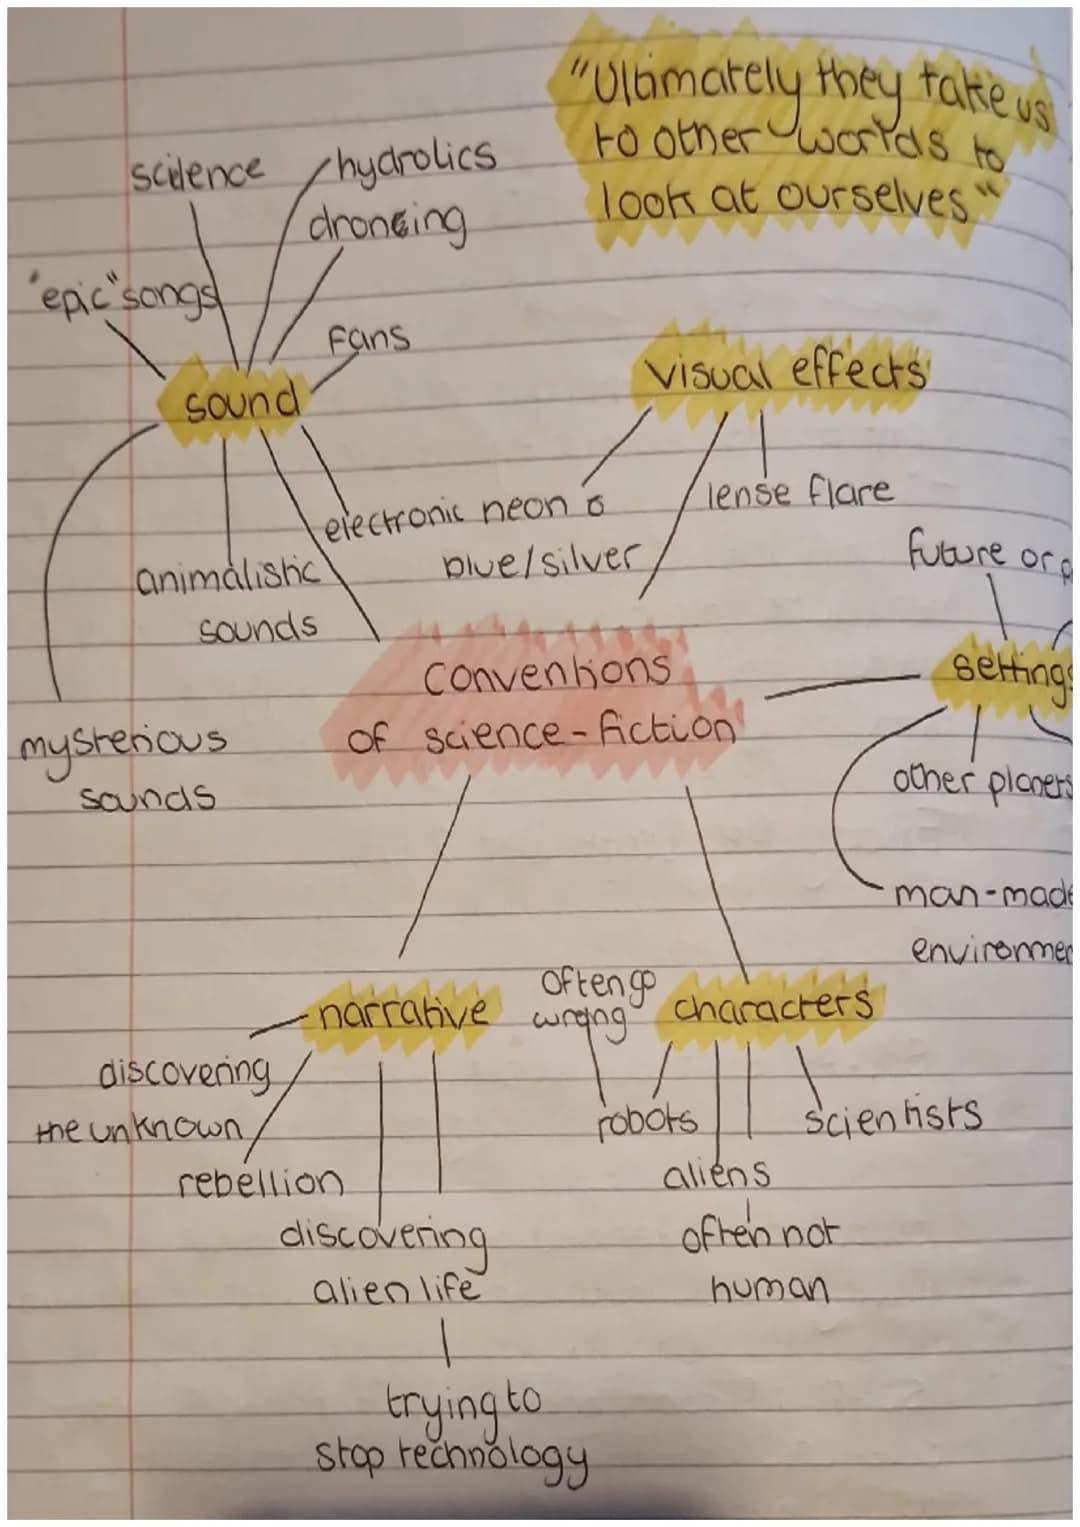 "Ultimately they take us
to other worlds to
look at ourselves"
science
hydrolics
droneing
"epic" songs
fans
sound
visual effects
electronic
neon &
blue/silver
lense flare
animalistic
sounds
mysterious
sounds
conventions
of science-fiction
future or
settings
other planets
man-made
narrative
discovering
the unknown
rebellion
discovering
alien life
trying to
stop technology
characters
often go
wrong
robots
scientists
aliens
often not
human